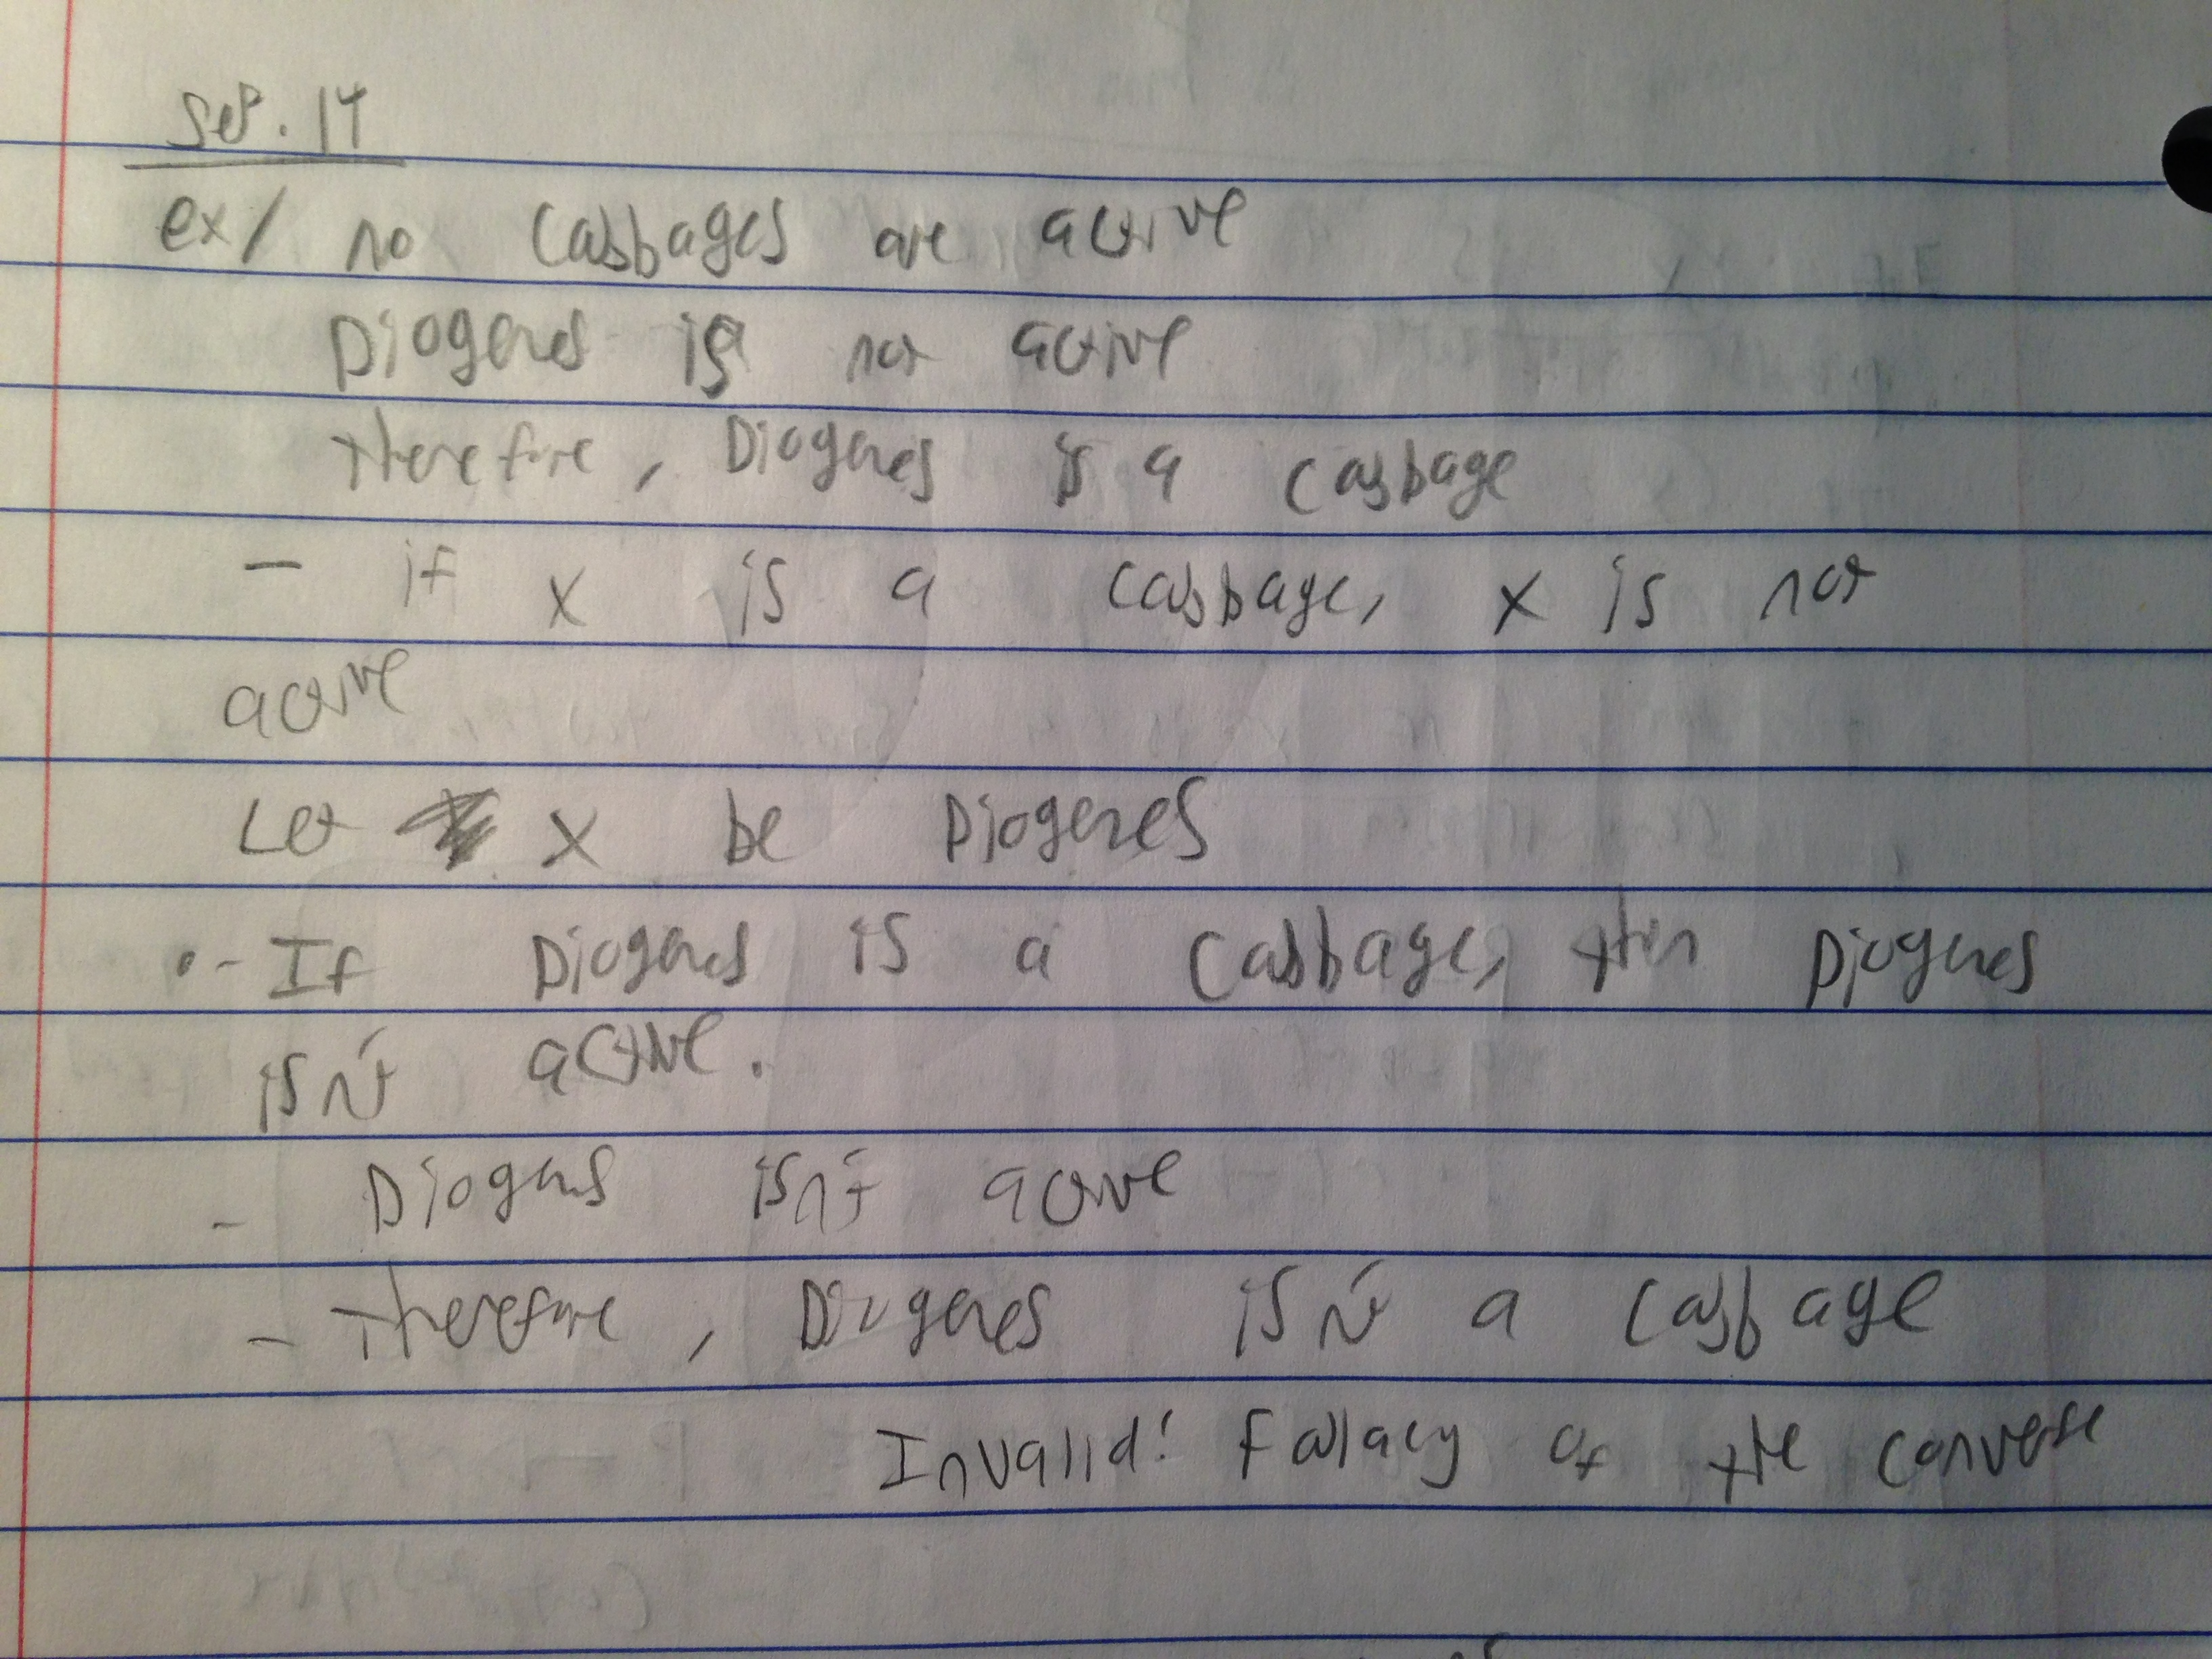 Sep. 14
ex/ no cabbages are active
Diogenes is not active
therefore, Diogenes is a cabbage
- if x is a cabbage, x is not
active
Let x be Diogenes
- If Diogenes is a cabbage, then Diogenes
isn't active.
- Diogenes isn't active
- therefore, Diogenes isn't a cabbage
Invalid! Fallacy of the converse